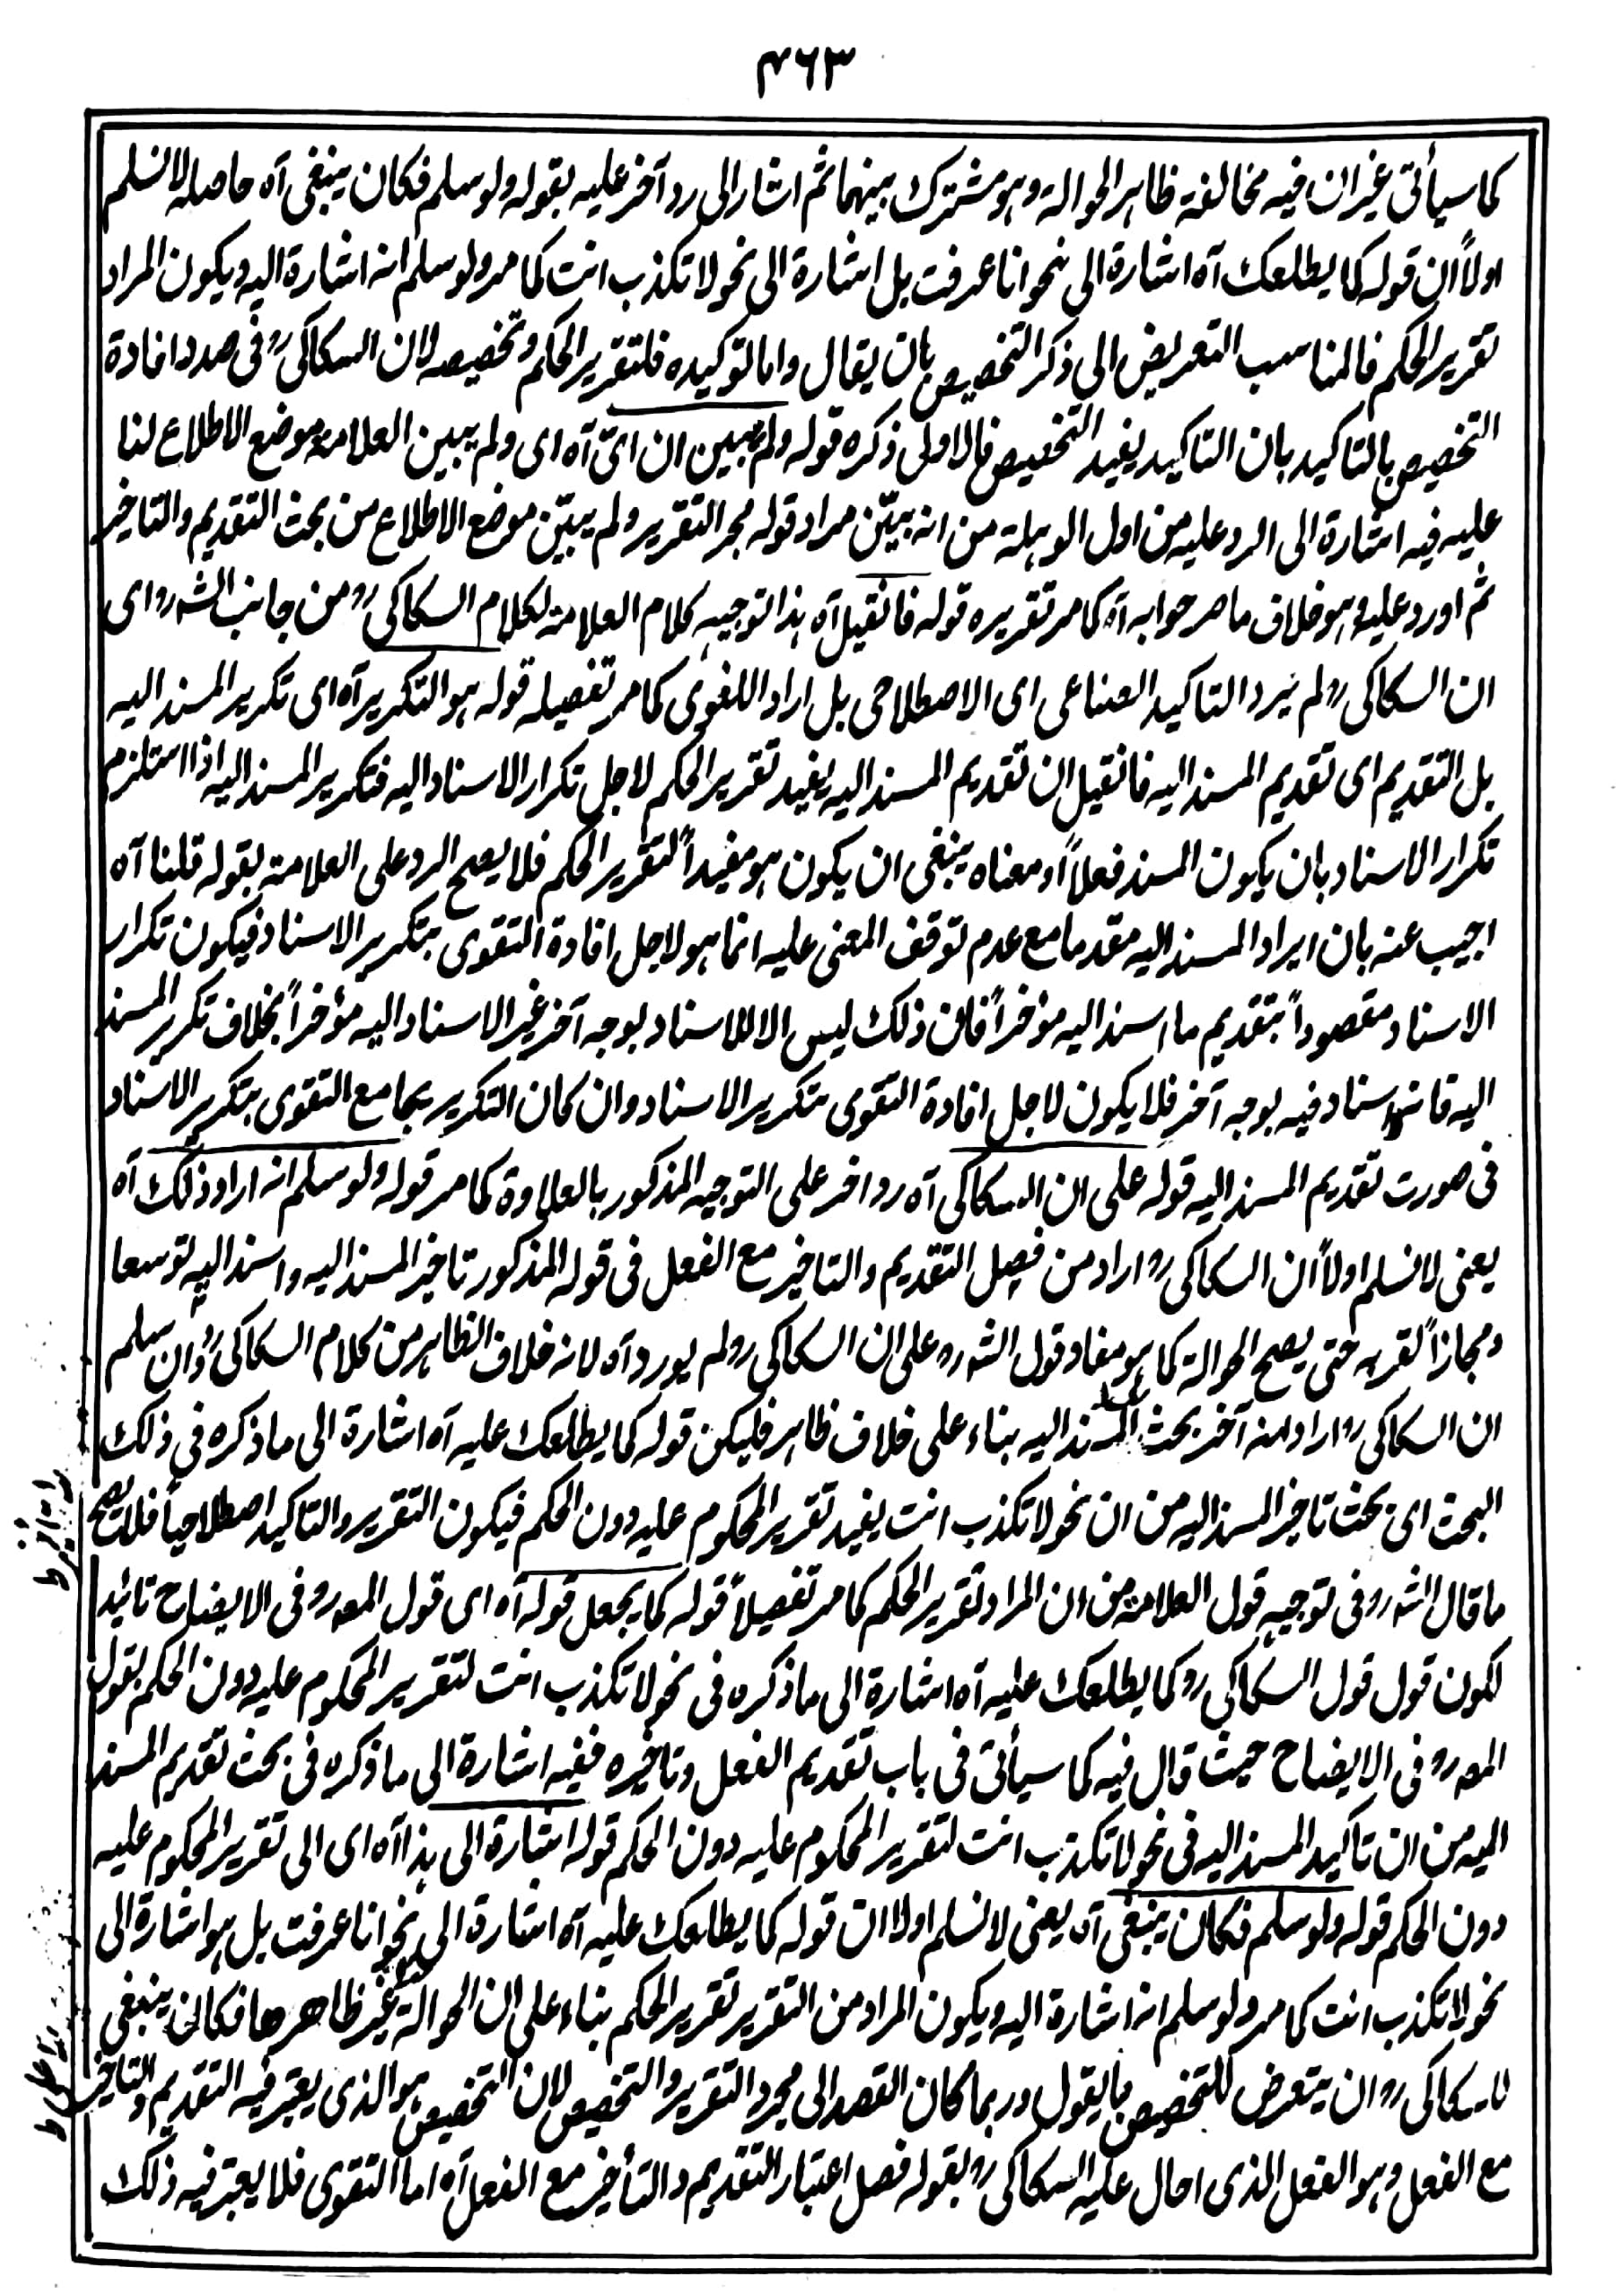 ۴۶۳
كما سيأتى غير ان فيه مخالفة ظاهر الحوالة وهو مشترك بينهما ثم اشار الى رد آخر عليه بقوله ولو سلم فكان ينبغى آه حاصله لا نسلم
اولاً ان قوله كما يطلعك آه اشارة الى نحو انا عرفت بل اشارة الى نحو لا تكذب انت كما مر ولو سلم انه اشارة اليه ويكون المراد
تقرير الحكم فالمناسب التعريض الى ذكر التخصيص بان يقال واما توكيده فلتقرير الحكم وتخصيصه لان السكاكى رو فى صدد افادة
التخصيص بالتاكيد بان التاكيد يفيد التخصيص فالاولى ذكره قوله ولم يبين ان اىّ آه اى ولم يبين العلامة موضع الاطلاع لنا
عليه فيه اشارة الى الرد عليه من اول الوهلة من انه بيّن مراد قوله مجر التقرير ولم يبيّن موضع الاطلاع من بحث التقديم والتاخير
ثم اورد عليه وهو خلاف ما مر جوابه آه كما مر تقريره قوله فانقيل آه هذا توجيه كلام العلامة لكلام السكاكى رو من جانب الشه رو اى
ان السكاكى رو لم يرد التاكيد الصناعى اى الاصطلاحى بل اراد اللغوى كما مر تفصيله قوله هو التكرير آه اى تكرير المسند اليه
بل التقديم اى تقديم المسند اليه فانقيل ان تقديم المسند اليه يفيد تقرير الحكم لاجل تكرار الاسناد اليه فتكرير المسند اليه اذا استلزم
تكرار الاسناد بان يكون المسند فعلاً او معناه ينبغى ان يكون هو مفيداً لتقرير الحكم فلا يصح الرد على العلامة بقوله قلنا آه
اجيب عنه بان ايراد المسند اليه مقدما مع عدم توقف المعنى عليه انما هو لاجل افادة التقوى بتكرير الاسناد فيكون تكرار
الاسناد مقصوداً بتقديم ما اسند اليه مؤخراً فان ذلك ليس الا للاسناد بوجه آخر غير الاسناد اليه مؤخراً بخلاف تكرير المسند
اليه اسناد فيه بوجه آخر فلا يكون لاجل افادة التقوى بتكرير الاسناد وان كان التكرير يجامع التقوى بتكرير الاسناد
فى صورت تقديم المسند اليه قوله على ان السكاكى آه رد اخر على التوجيه المذكور بالعلاوة كما مر قوله ولو سلم انه اراد ذلك آه
يعنى لا نسلم اولاً ان السكاكى رو اراد من فصل التقديم والتاخير مع الفعل فى قوله المذكور تاخير المسند اليه واسند اليه توسعا
ومجازاً لقربه حتى يصح الحوالة كما هو مفاد قول الشه رو على ان السكاكى رو لم يورد آه لانه خلاف الظاهر من كلام السكاكى رو وان سلم
ان السكاكى رو اراد منه آخر بحث المسند اليه بناء على خلاف ظاهر فليكن قوله كما يطلعك عليه آه اشارة الى ما ذكره فى ذلك
البحث اى بحث تاخير المسند اليه من ان نحو لا تكذب انت يفيد تقرير المحكوم عليه دون الحكم فيكون التقرير والتاكيد اصطلاحياً فلا يصح
ما قال الشه رو فى توجيه قول العلامة من ان المراد تقرير الحكم كما مر تفصيلاً قوله كما يجعل قوله آه اى قول المصه رو فى الايضاح تائيد
لكون قول قول السكاكى رو كما يطلعك عليه آه اشارة الى ما ذكره فى نحو لا تكذب انت لتقرير المحكوم عليه دون الحكم بقول
المصه رو فى الايضاح حيث قال فيه كما سيأتى فى باب تقديم الفعل وتاخيره ففيه اشارة الى ما ذكره فى بحث تقديم المسند
اليه من ان تاكيد المسند اليه فى نحو لا تكذب انت لتقرير المحكوم عليه دون الحكم قوله اشارة الى هذا آه اى الى تقرير المحكوم عليه
دون الحكم قوله ولو سلم فكان ينبغى آه يعنى لا نسلم اولا ان قوله كما يطلعك عليه آه اشارة الى نحو انا عرفت بل هو اشارة الى
نحو لا تكذب انت كما مر ولو سلم انه اشارة اليه ويكون المراد من التقرير تقرير الحكم بناء على ان الحوالة غير ظاهرها فكان ينبغى
للسكاكى رو ان يتعرض للتخصيص بما يقول وربما كان القصد الى مجرد التقرير والتخصيص لان التخصيص هو الذى يعتبر فيه التقديم والتاخير
مع الفعل وهو الفعل الذى احال عليه السكاكى رو بقوله فصل اعتبار التقديم والتأخير مع الفعل آه اما التقوى فلا يعتبر فيه ذلك